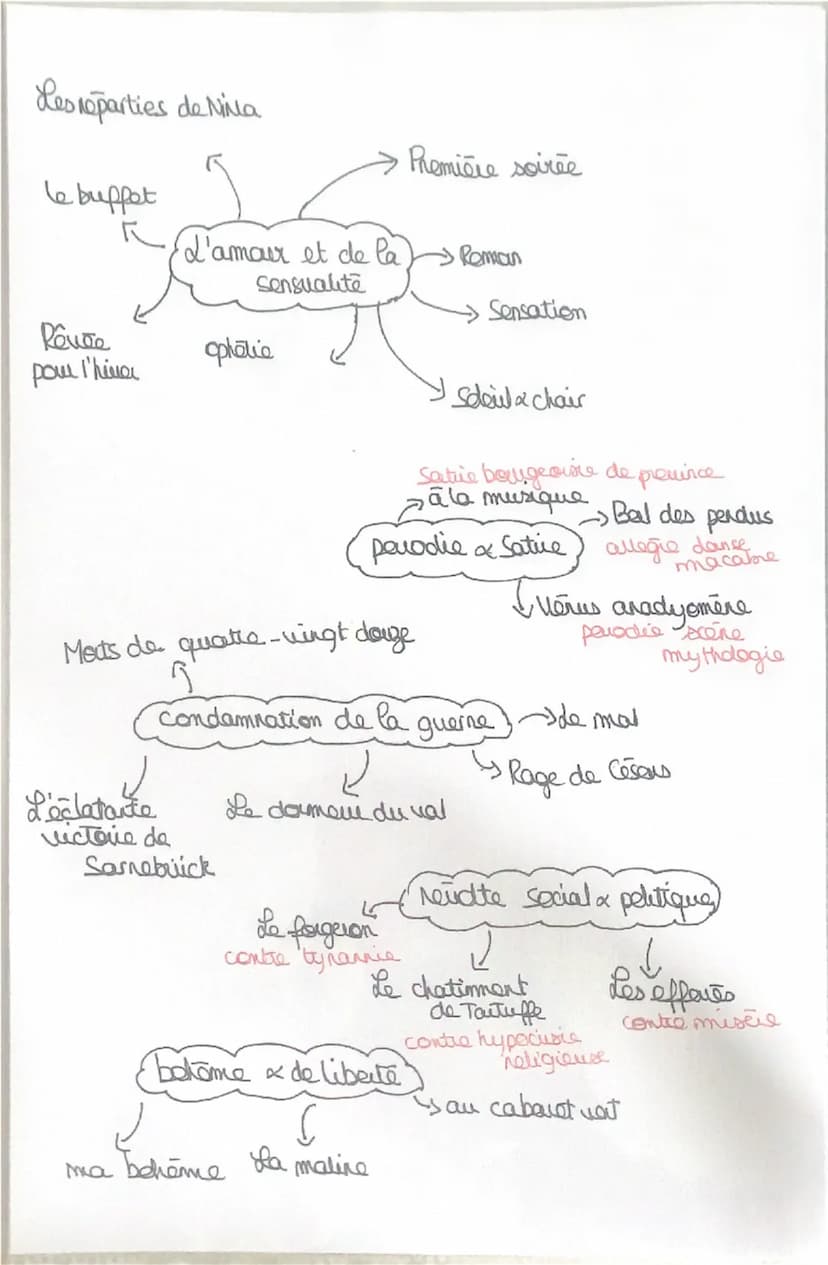 Les réparties de Nina
Première soirée
le buffet
L'amour et de la
sensualité
Roman
Sensation
Rêvée
pour l'hiver
ophélie
Soleil & chair
Satire bourgeoisie de province
à la musique
Bal des pendus
parodie & Satire
allégie danse
macabre
Vénus anadyomène
parodie scène
mythologie
Morts de quatre-vingt douze
Condamnation de la guerre
de mal
Rage de Césars
L'éclatante
victoire de
Sarrebrück
Le dormeur du val
Révolte social & politique
Le forgeron
contre tyrannie
Le chatiment
de Tartuffe
Les effarés
contre misère
contre hypocrisie
religieuse
bohème & de liberté
au cabaret vert
ma bohème
La maline